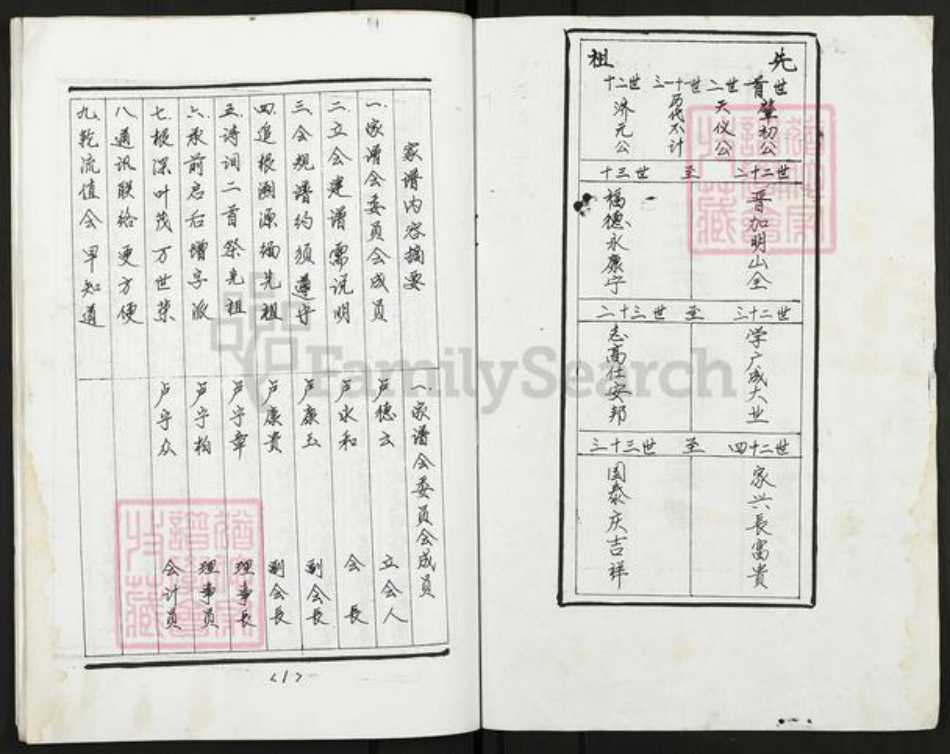 先祖
世 首 肇初公
二世 天仪公
三一十世 历代不计
十二世 济元公
十三世 至 二十二世
福德永康宁
晋加明山全
二十三世 至 三十二世
志高仕安邦
学广成大业
三十三世 至 四十二世
国泰庆吉祥
家兴長富貴
家谱内容摘要
一、家谱会委員会成員
二、立会建谱需说明
三、会规谱约须遵守
四、追根溯源缅先祖
五、诗词二首祭先祖
六、承前启后增字派
七、根深叶茂万世荣
八、通讯联络更方便
九、轮流值会早知道
一、家谱会委员会成员
卢德云 立会人
卢永和 会長
卢康玉 副会長
卢康貴 副会長
卢宇章 理事長
卢宇柏 理事員
卢宇众 会计員
<1>
FamilySearch